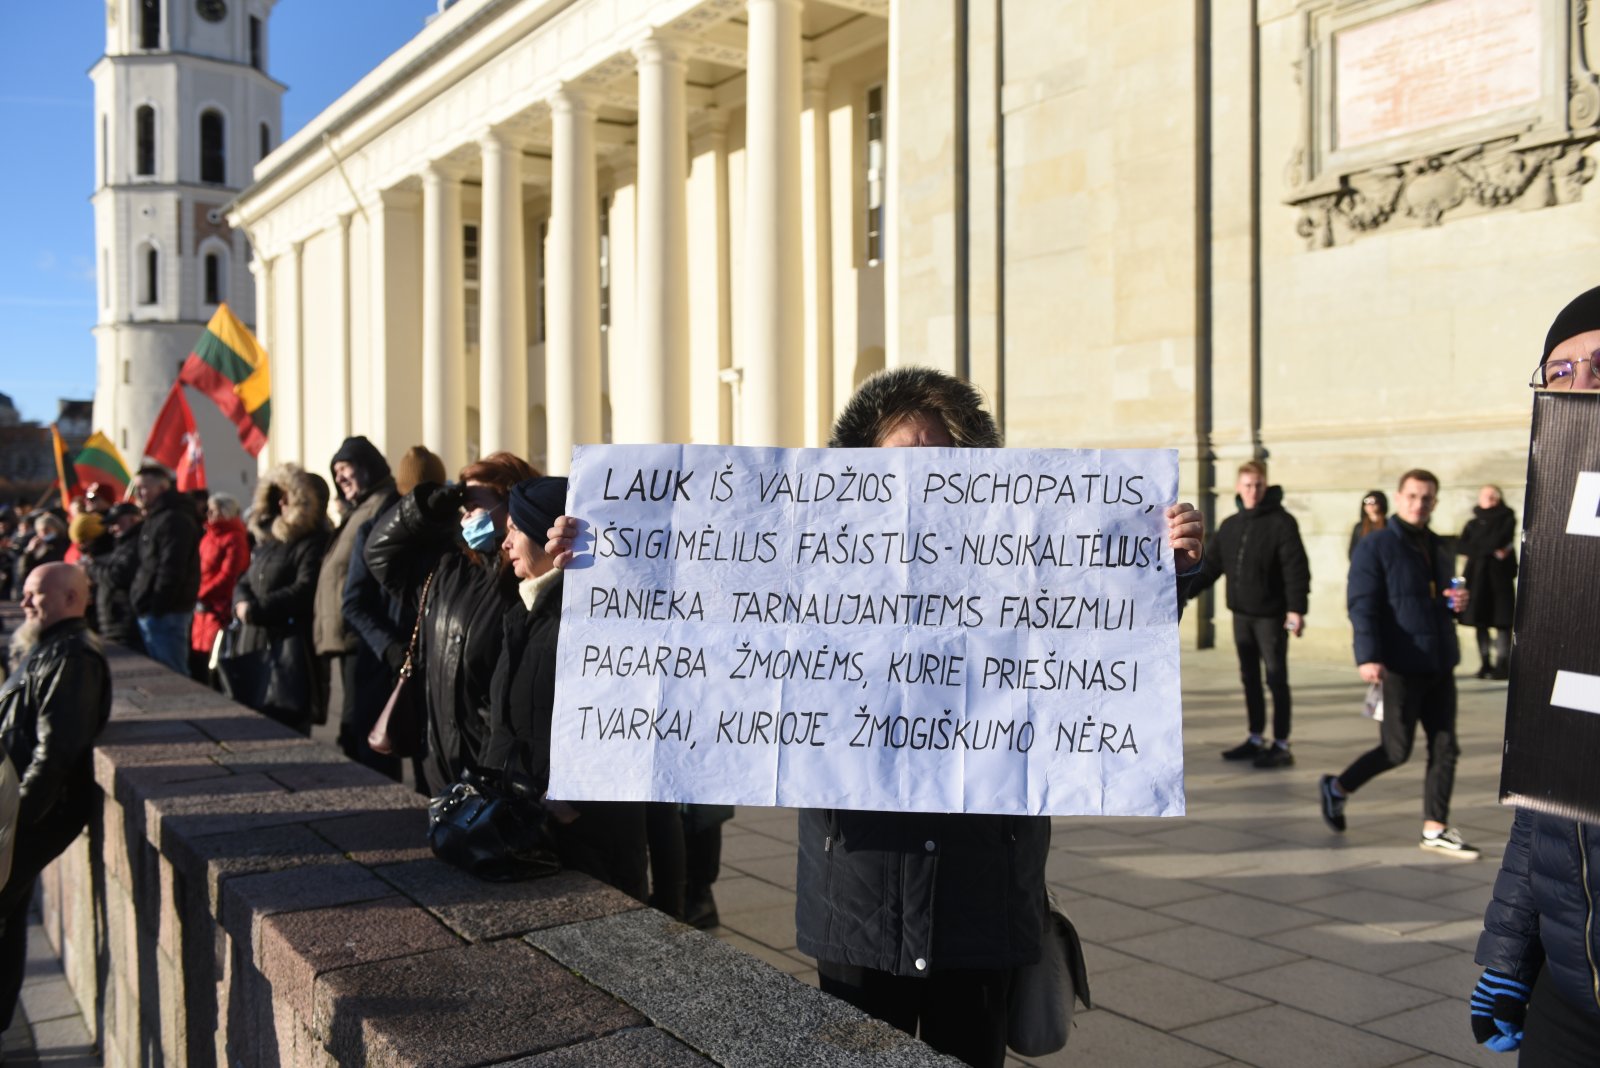 LAUK IŠ VALDŽIOS PSICHOPATUS,
IŠSIGIMĖLIUS FAŠISTUS - NUSIKALTĖLIUS!
PANIEKA TARNAUJANTIEMS FAŠIZMUI
PAGARBA ŽMONĖMS, KURIE PRIEŠINASI
TVARKAI, KURIOJE ŽMOGIŠKUMO NĖRA